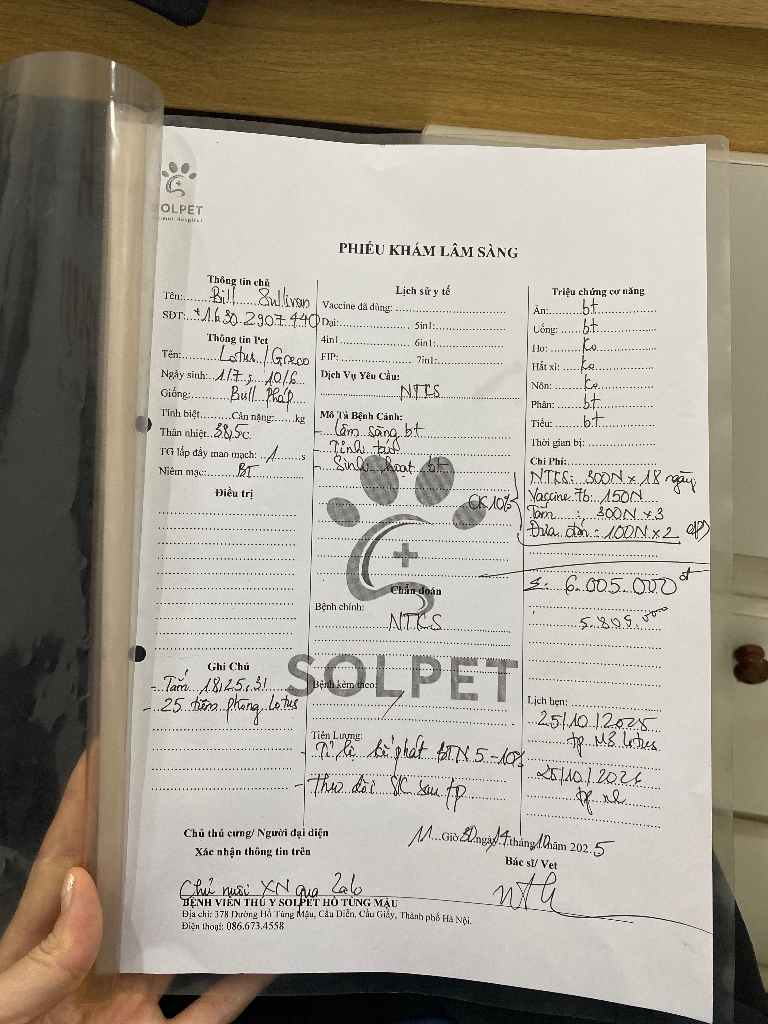 SOLPET
PHIẾU KHÁM LÂM SÀNG
Thông tin chủ
Tên: Bill Sullivan
SĐT: +1.630.2907.440
Thông tin Pet
Tên: Lotus / Greco
Ngày sinh: 1/7 ; 10/6
Giống: Bull Pháp
Tính biệt Cân nặng: kg
Thân nhiệt: 38,5°C
TG lấp đầy mao mạch: 1 s
Niêm mạc: BT
Điều trị
Ghi Chú
- Tắm 18, 25, 31
- 25 tiêm phòng Lotus
Lịch sử y tế
Vaccine đã dùng:
Dại: 5in1:
4in1 6in1:
FIP: 7in1:
Dịch Vụ Yêu Cầu:
NTCS
Mô Tả Bệnh Cảnh:
- Lâm sàng bt
- Tỉnh táo
- Sinh hoạt bt
CK 10%
Chẩn đoán
Bệnh chính:
NTCS
SOLPET
Bệnh kèm theo:
Tiên Lượng:
- Tỉ lệ tái phát BTN 5-10%
- Theo dõi SK sau tp
Triệu chứng cơ năng
Ăn: bt
Uống: bt
Ho: Ko
Hắt xì: Ko
Nôn: Ko
Phân: bt
Tiểu: bt
Thời gian bị:
Chi Phí:
NTCS: 300N x 18 ngày
Vaccine 7b: 150N
Tắm : 300N x 3
Đưa đón: 100N x 2
Σ: 6.005.000đ
5.809.000
Lịch hẹn:
25/10/2025
tp M3 Lotus
25/10/2026
tp nl
Chủ thú cưng/ Người đại diện
Xác nhận thông tin trên
11 Giờ 30 ngày 14 tháng 10 năm 2025
Bác sĩ/ Vet
Chủ nuôi XN qua Zalo
BỆNH VIỆN THÚ Y SOLPET HỒ TÙNG MẬU
Địa chỉ: 378 Đường Hồ Tùng Mậu, Cầu Diễn, Cầu Giấy, Thành phố Hà Nội.
Điện thoại: 086.673.4558